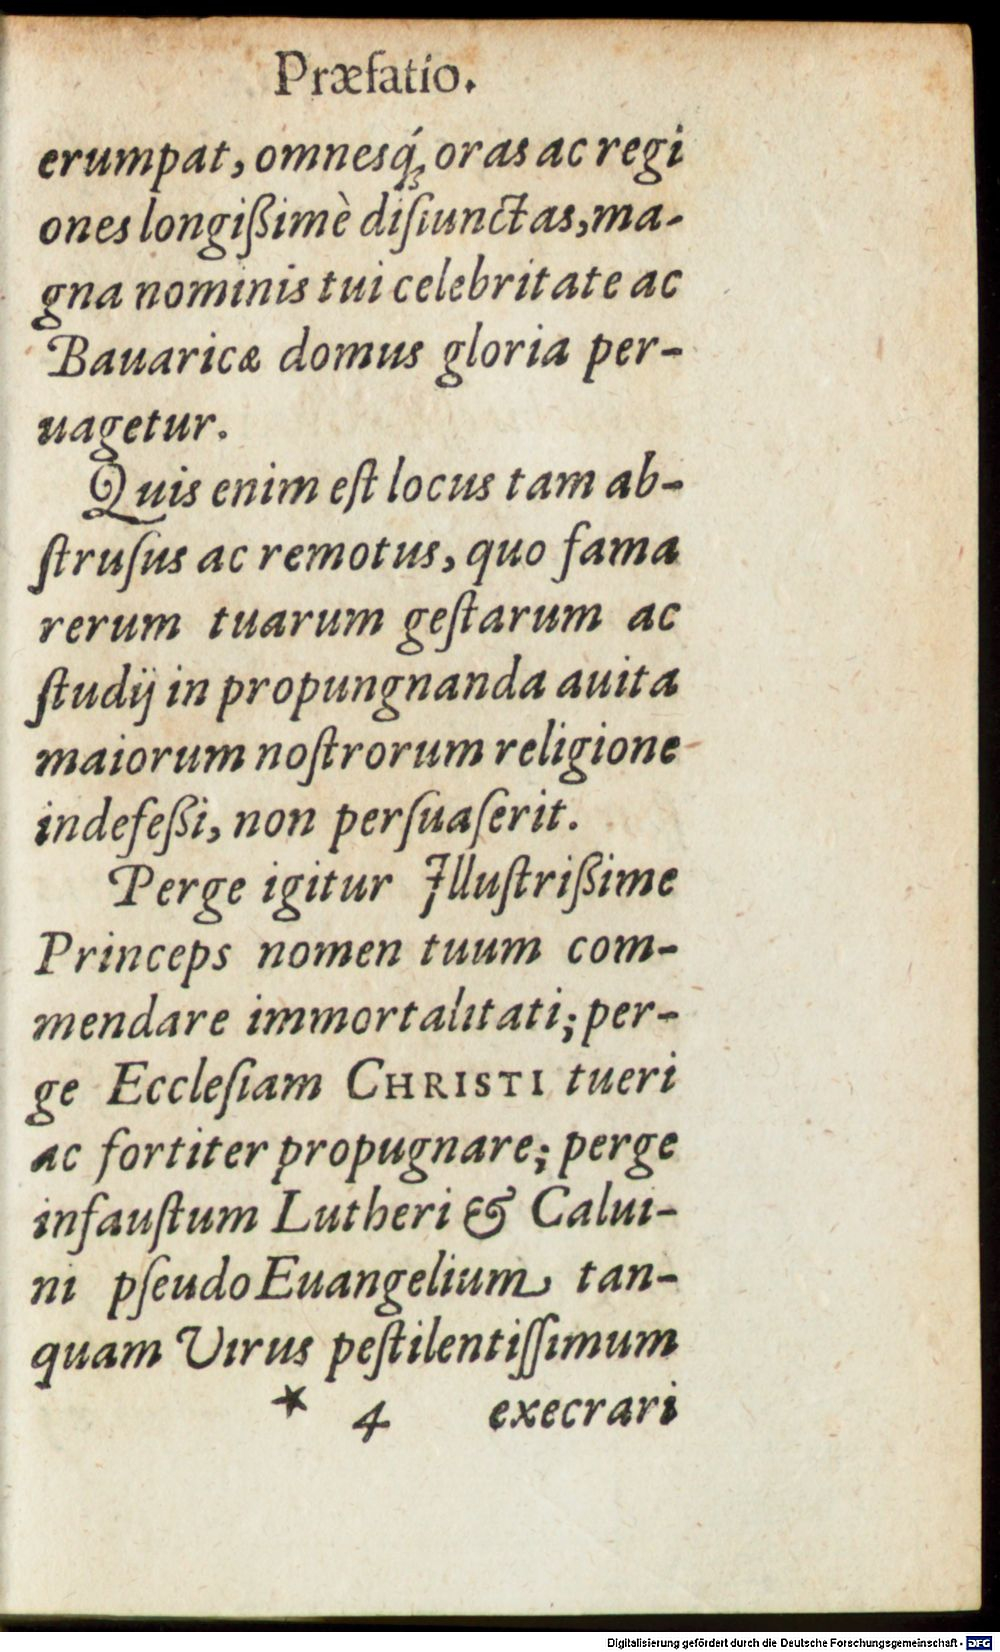 Præfatio.
erumpat, omnesq́ꝫ oras ac regi
ones longißimè diſiunctas, ma-
gna nominis tui celebritate ac
Bauaricæ domus gloria per-
uagetur.
Quis enim eſt locus tam ab-
ſtruſus ac remotus, quo fama
rerum tuarum geſtarum ac
ſtudij in propungnanda auita
maiorum noſtrorum religione
indefeßi, non perſuaſerit.
Perge igitur Illuſtrißime
Princeps nomen tuum com-
mendare immortalitati; per-
ge Eccleſiam CHRISTI tueri
ac fortiter propugnare; perge
infauſtum Lutheri & Calui-
ni pſeudo Euangelium tan-
quam Virus peſtilentiſſimum
* 4 execrari
Digitalisierung gefördert durch die Deutsche Forschungsgemeinschaft - DFG